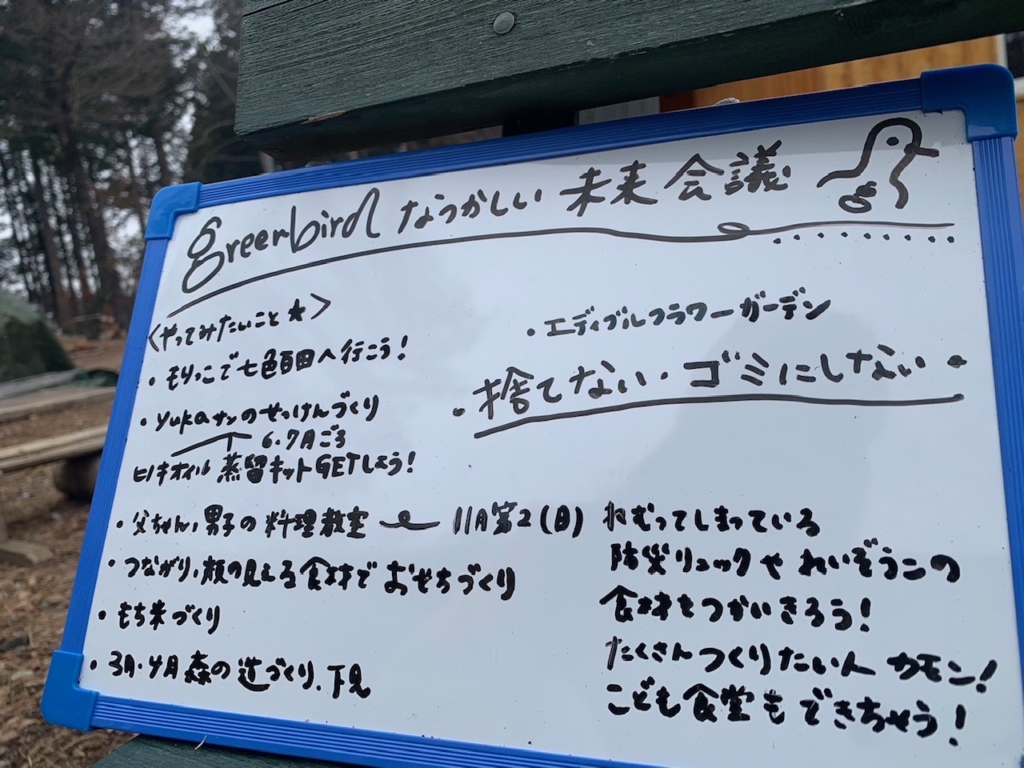 greenbird なつかしい未来会議
<やってみたいこと★>
・もりっこで七色百田へ行こう!
・yukaサンのせっけんづくり
6.7月ごろ
ヒノキオイル 蒸留キットGETしよう!
・父ちゃん,男子の料理教室 11月第2(日)
・つながり,顔の見える食材でおせちづくり
・もち米づくり
・3月・4月森の道づくり.下見
・エディブルフラワーガーデン
・捨てない・ゴミにしない・
ねむってしまっている
防災リュックやれいぞうこの
食材をつかいきろう!
たくさんつくりたい人カモン!
こども食堂もできちゃう!